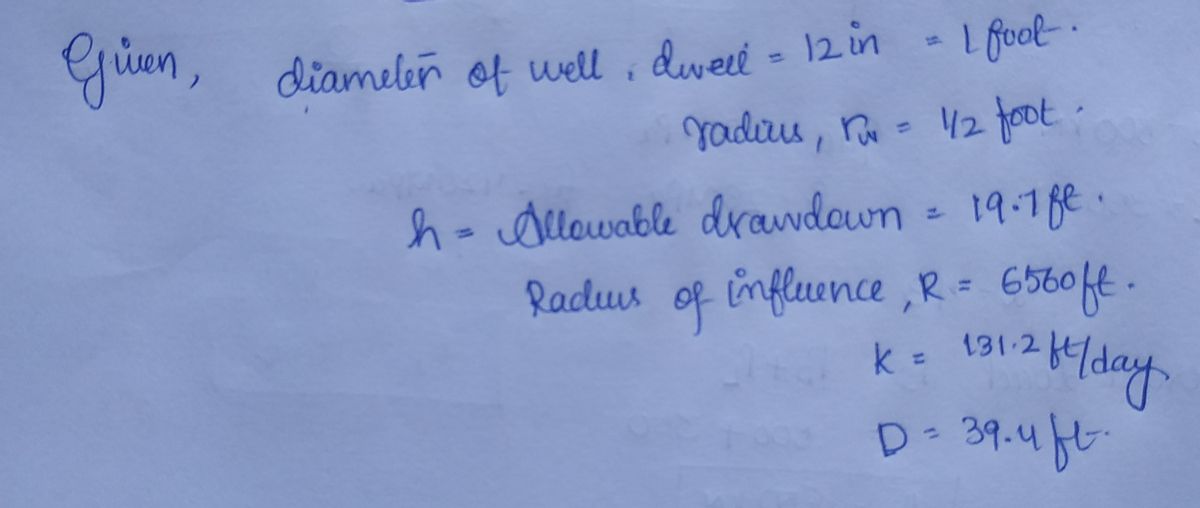 Given, diameter of well, dwell = 12 in = 1 foot.
radius, rw = 1/2 foot.
h = Allowable drawdown = 19.7 ft.
Radius of influence, R = 6560 ft.
K = 131.2 ft/day
D = 39.4 ft.